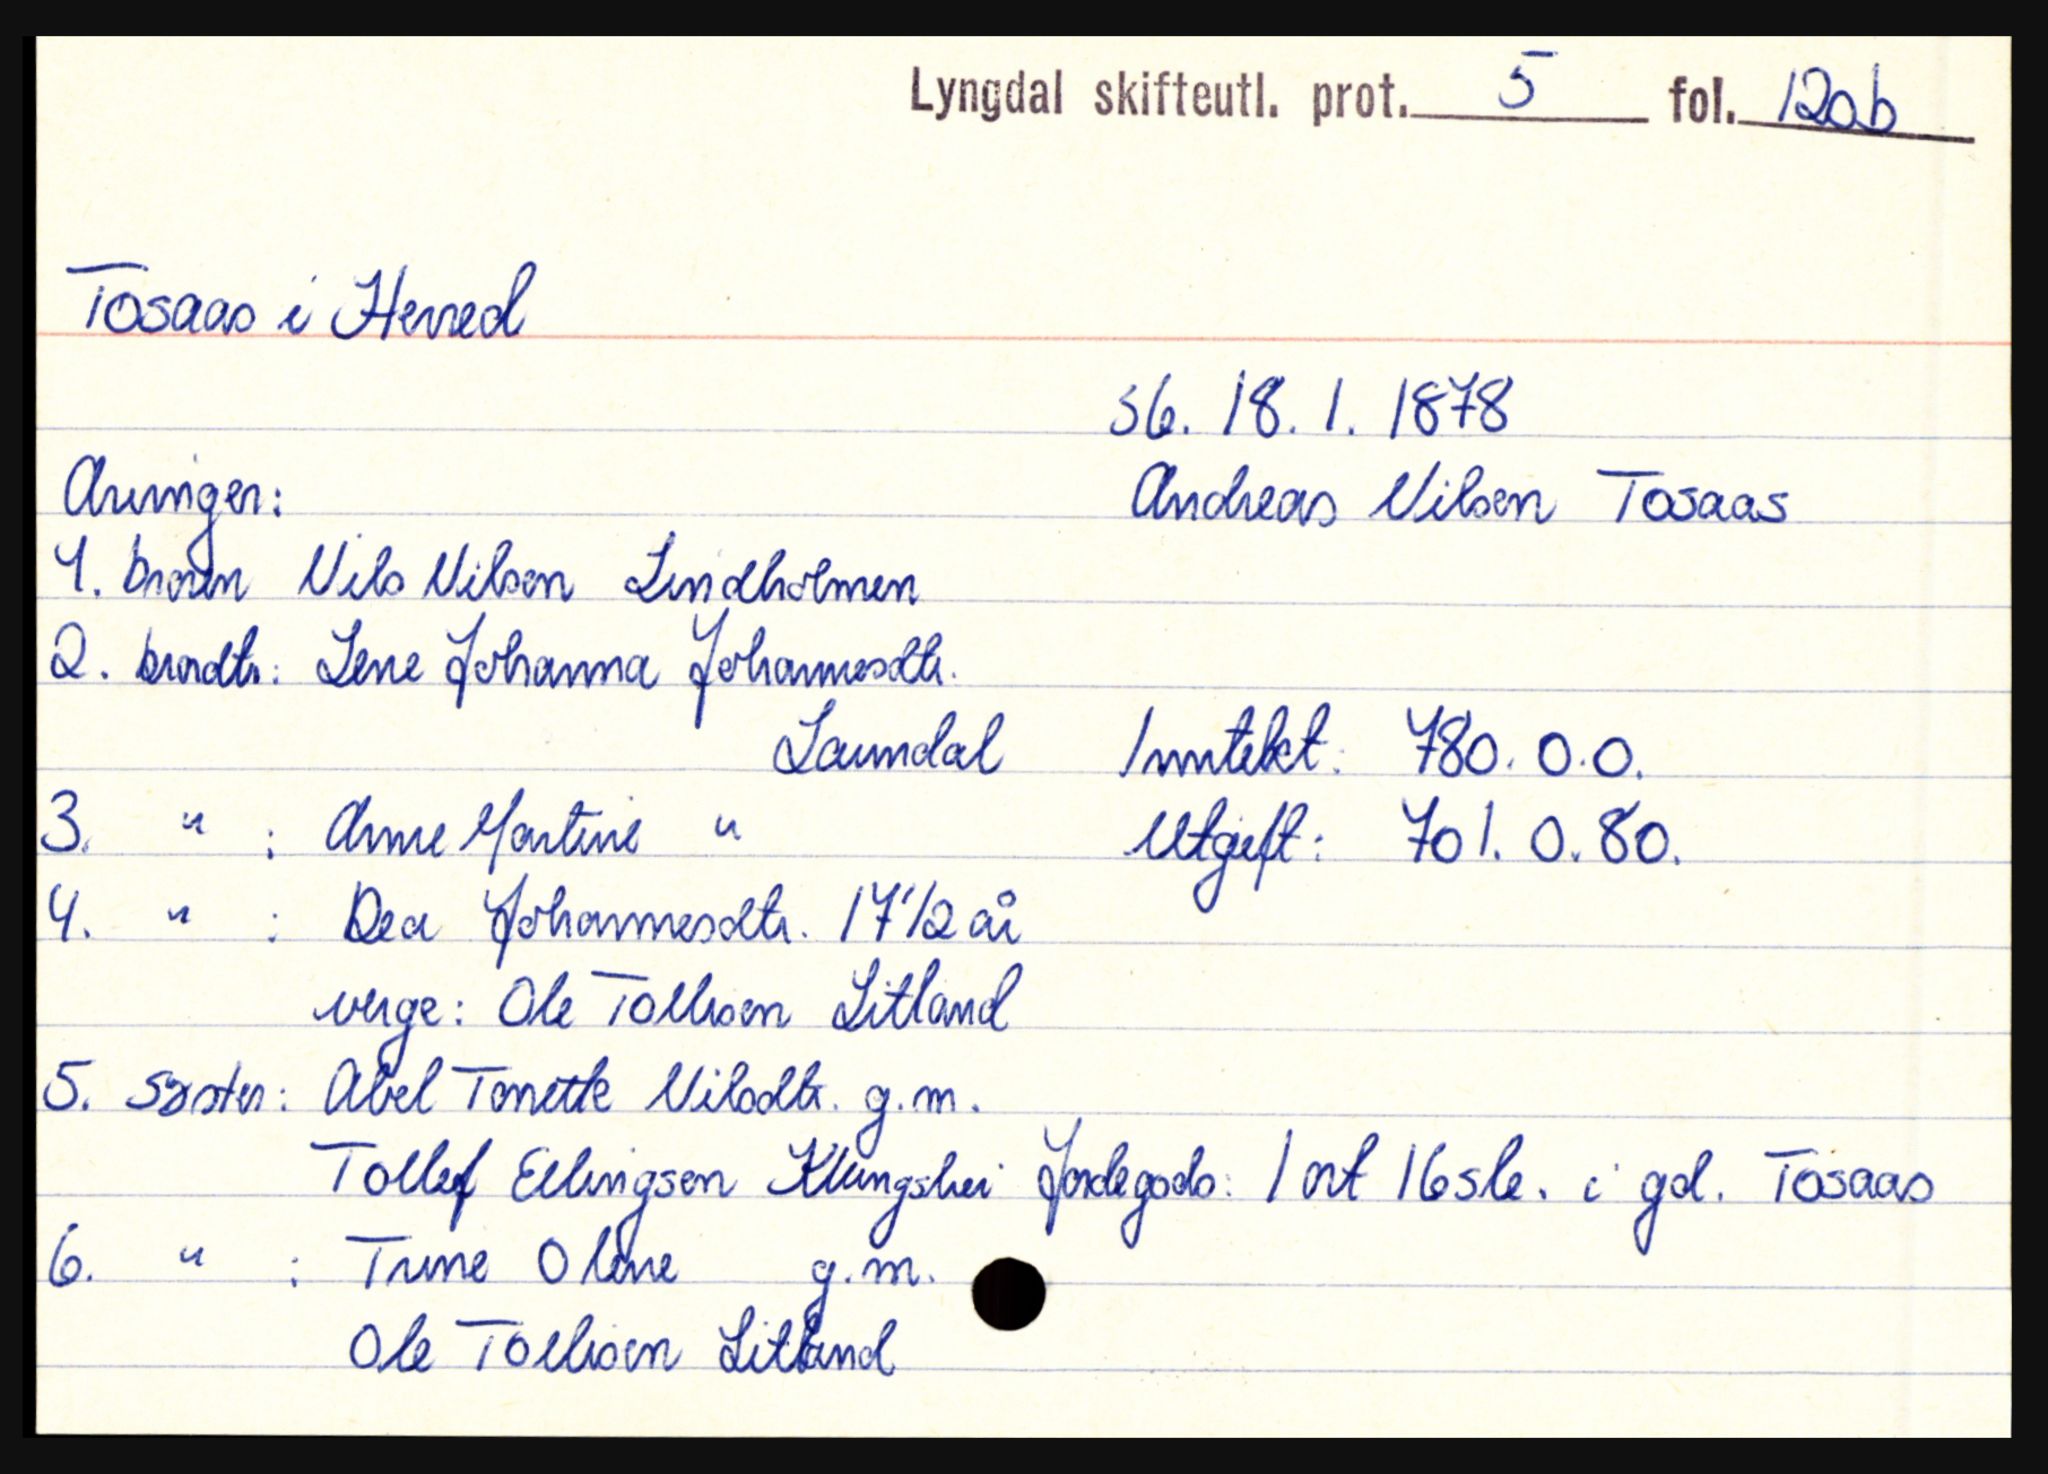 Lyngdal skifteutl. prot. 5 fol. 12ab
Tosaas i Herred
sb. 18. 1. 1878
Arvinger:
Andreas Nilsen Tosaas
1. broren Nils Nilsen Lindholmen
2. brordtr: Lene Johanna Johannesdtr.
Laundal
Inntekt: 780. 0. 0.
3. " : Anne Martine "
Utgift: 701. 0. 80.
4. " : Dea Johannesdtr. 17 1/2 år
verge: Ole Tollisen Litland
5. Søster: Abel Tonette Nilsdtr. g.m.
Tollef Ellingsen Klungshei
Jordegods: 1 ort 16 sk. i gd. Tosaas
6. " : Trine Oline g.m.
Ole Tollisen Litland